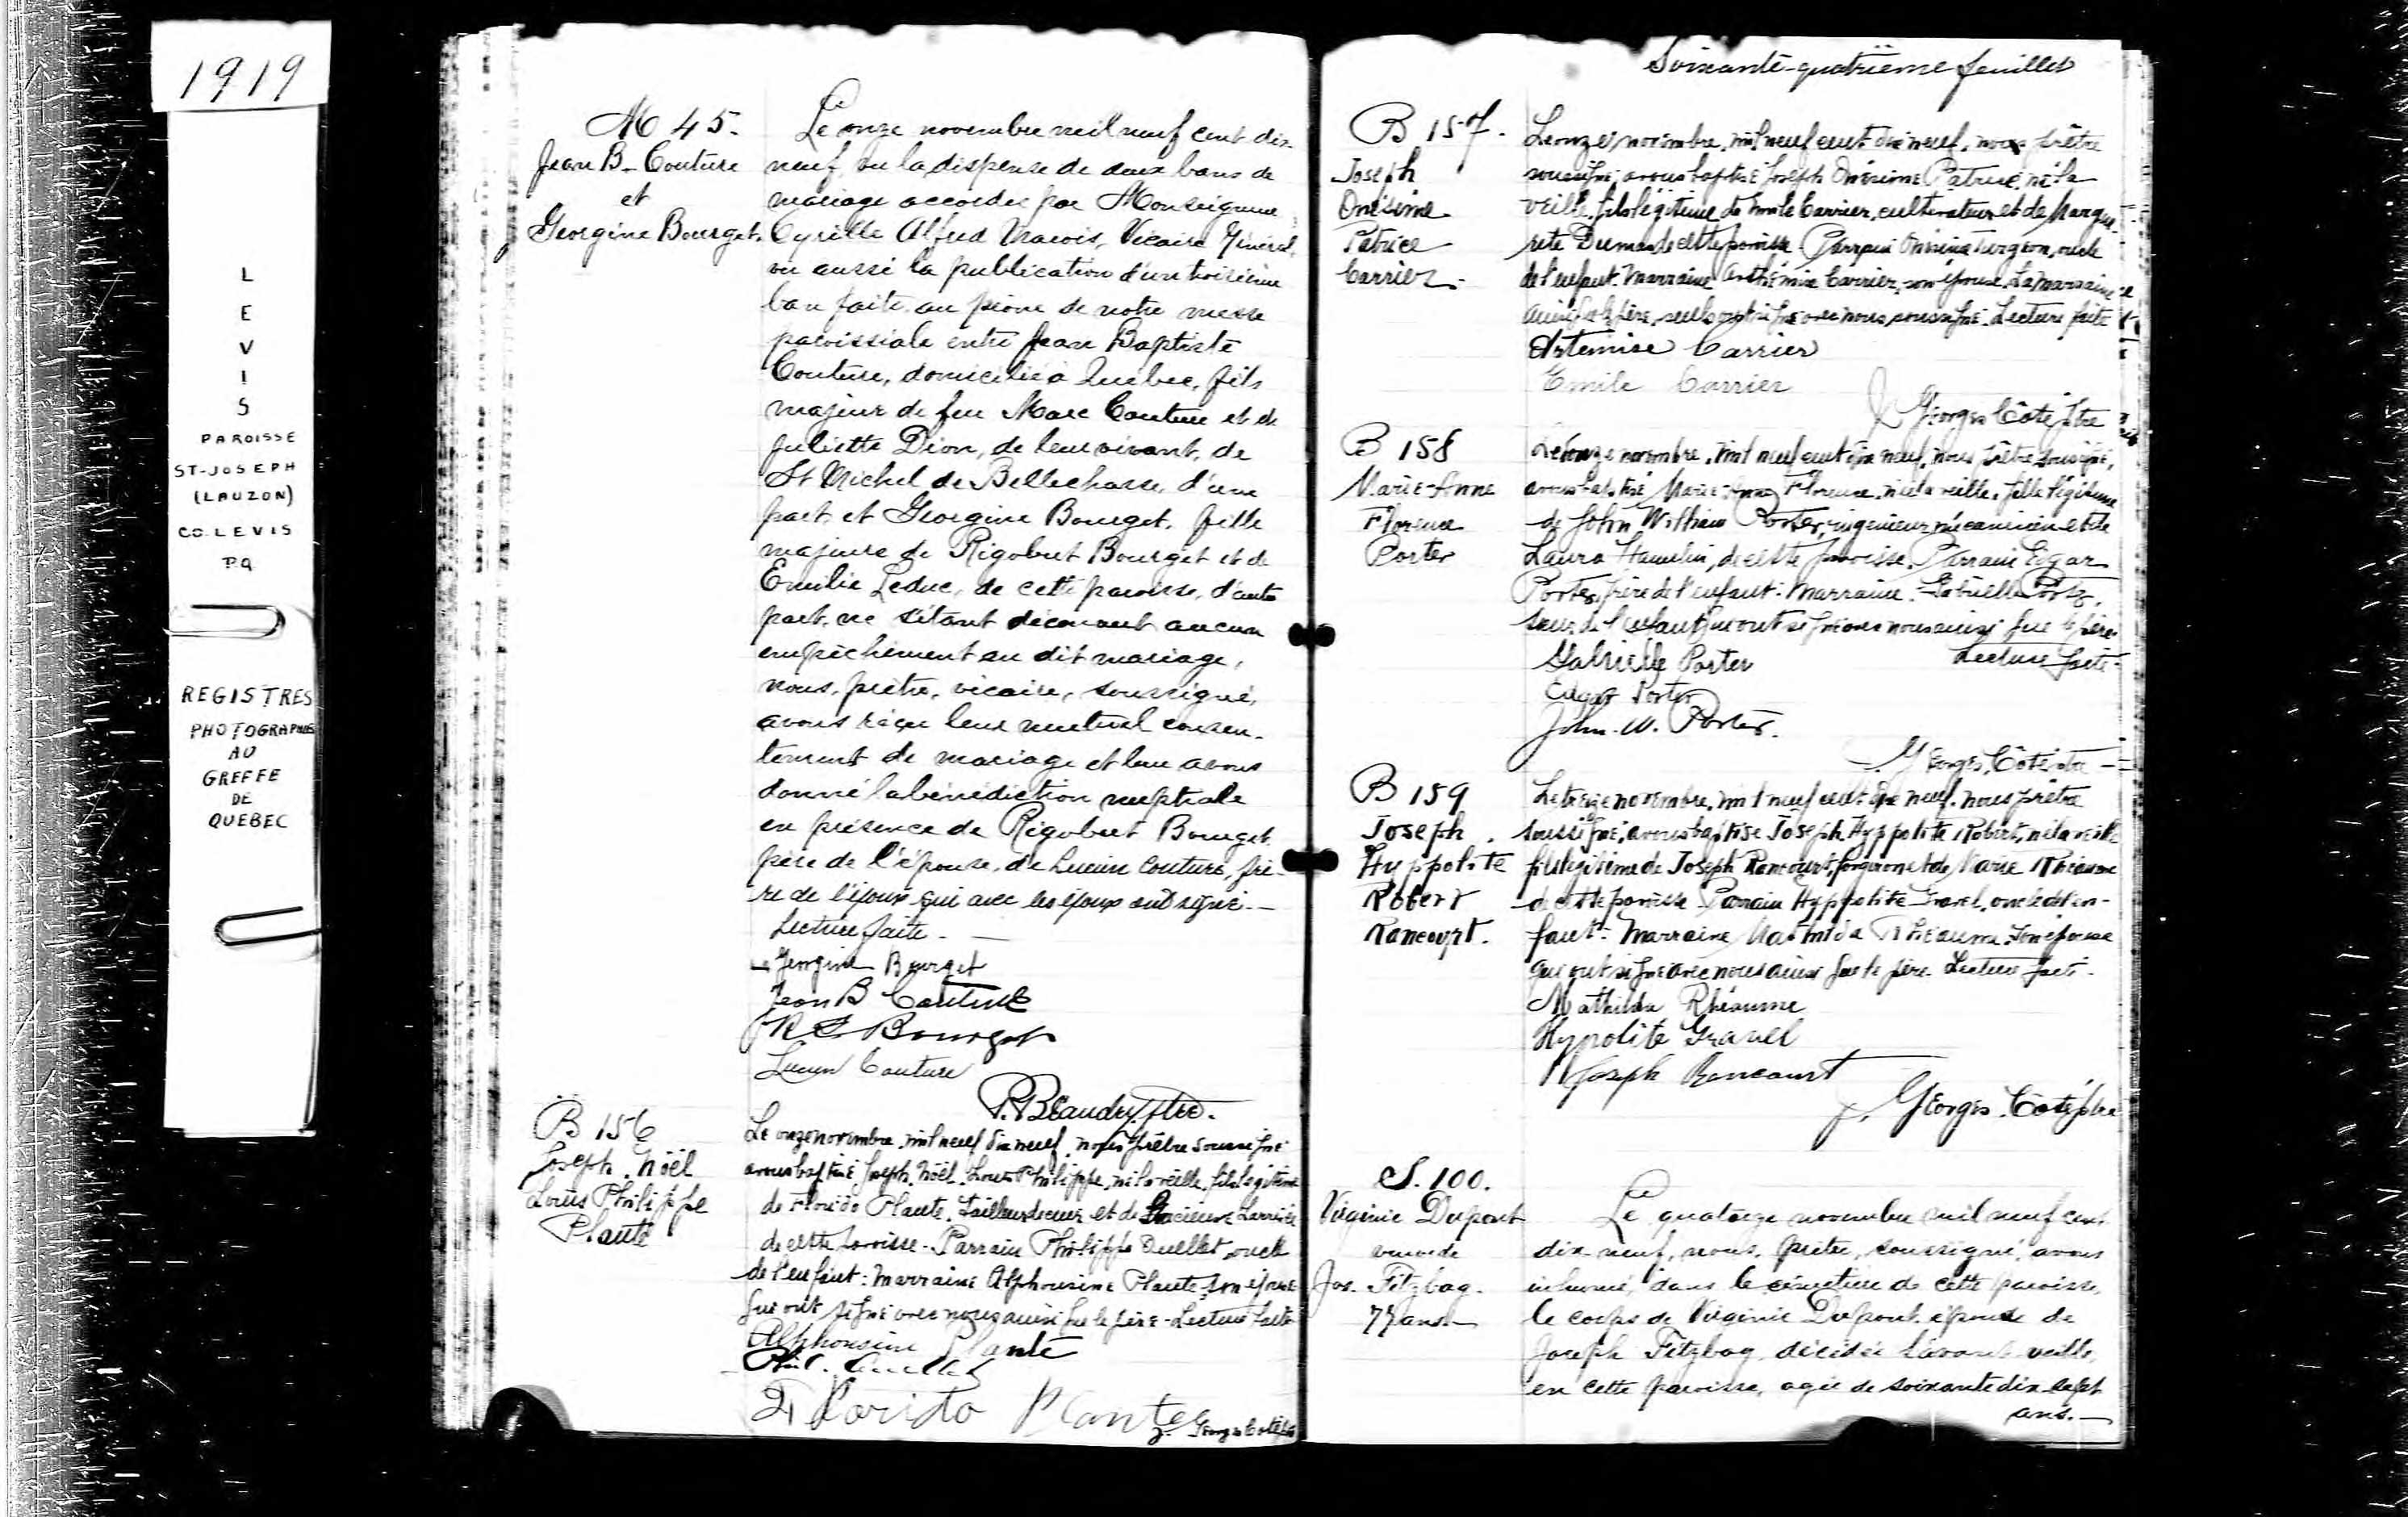 1919
L
E
V
I
S
PAROISSE
ST-JOSEPH
(LAUZON)
CO. LEVIS
P.Q
REGISTRES
PHOTOGRAPHIES
AU
GREFFE
DE
QUEBEC
M 45.
Jean B. Couture
et
Georgine Bourget.
Le onze novembre mil neuf cent dix
neuf, vu la dispense de deux bans de
mariage accordée par Monseigneur
Cyrille Alfred Marois, Vicaire Général,
vu aussi la publication d'un troisième
ban faite au prône de notre messe
paroissiale entre Jean Baptiste
Couture, domicilié à Québec, fils
majeur de feu Marc Couture et de
Juliette Dion, de leur vivant, de
St Michel de Bellechasse, d'une
part, et Georgine Bourget, fille
majeure de Rigobert Bourget et de
Emilie Leduc, de cette paroisse, d'autre
part, ne s'étant découvert aucun
empêchement au dit mariage,
nous, prêtre, vicaire, soussigné,
avons reçu leur mutuel consen-
tement de mariage et leur avons
donné la bénédiction nuptiale
en présence de Rigobert Bourget
père de l'épouse, de Lucien Couture, frè-
re de l'époux qui avec les époux ont signé.—
Lecture faite.—
Georgine Bourget
Jean B Couture
R Bourget
Lucien Couture
P. Beaudry, ptre.
B 156
Joseph. Noël
Louis Philippe
Plante
Le onze novembre, mil neuf dix neuf, nous prêtre soussigné
avons baptisé Joseph. Noël. Louis Philippe, né la veille, fils légitime
de Florido Plante, tailleur de cuir et de
de cette paroisse. Parrain Philippe Ouellet, oncle
de l'enfant: Marraine Alphonsine Plante son épouse
qui ont signé avec nous ainsi que le père - Lecture faite
Alphonsine Plante
Phil. Ouellet
Florido Plante
Georges Coté ptre
Soixante-quatrième feuillet
B 157.
Joseph
Onésime
Patrice
Carrier.
Le onze novembre, mil neuf cent dix neuf, nous prêtre
soussigné, avons baptisé Joseph Onésime Patrice, né la
veille, fils légitime de Emile Carrier, cultivateur et de Margue-
rite Dumas de cette paroisse. Parrain Onésime Turgeon, oncle
de l'enfant. Marraine Arthémise Carrier, son épouse. La marraine
ainsi que le père, seuls ont signé avec nous soussigné. Lecture faite
Artemise Carrier
Emile Carrier
J. Georges Côté ptre
B 158
Marie-Anne
Florence
Porter
Le onze novembre, mil neuf cent dix neuf, nous prêtre soussigné,
avons baptisé Marie-Anne Florence, née la veille, fille légitime
de John William Porter, ingénieur mécanicien et de
Laura Hamelin, de cette paroisse. Parrain Edgar
Porter, frère de l'enfant. Marraine. Gabrielle Porter,
sœur de l'enfant qui ont signé avec nous ainsi que le père
Lecture faite.
Gabrielle Porter
Edgar Porter
John. W. Porter.
J. Georges Côté ptre
B 159
Joseph
Hyppolite
Robert
Rancourt.
Le treize novembre, mil neuf cent dix neuf, nous prêtre
soussigné, avons baptisé Joseph Hyppolite Robert, né la veille
fils légitime de Joseph Rancourt, forgeron et de Marie Rhéaume
de cette paroisse. Parrain Hyppolite Gravel, oncle de l'en-
fant. Marraine Mathilda Rhéaume son épouse
qui ont signé avec nous ainsi que le père. Lecture faite.
Mathilda Rhéaume
Hypolite Gravel
Joseph Rancourt
J. Georges Coté ptre
S. 100.
Virginie Dupont
veuve de
Jos. Fitzbag.
77 ans
Le quatorze novembre mil neuf cent
dix-neuf, nous, prêtre, soussigné, avons
inhumé, dans le cimetière de cette paroisse,
le corps de Virginie Dupont, épouse de
Joseph Fitzbag, décédée l'avant-veille,
en cette paroisse, agée de soixante dix-sept
ans.—